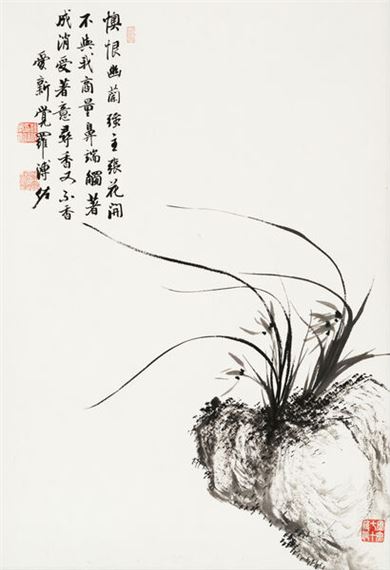 懊恨幽蘭強主張花開
不與我商量鼻端觸著
成消受著意尋香又不香
愛新覺羅溥佐